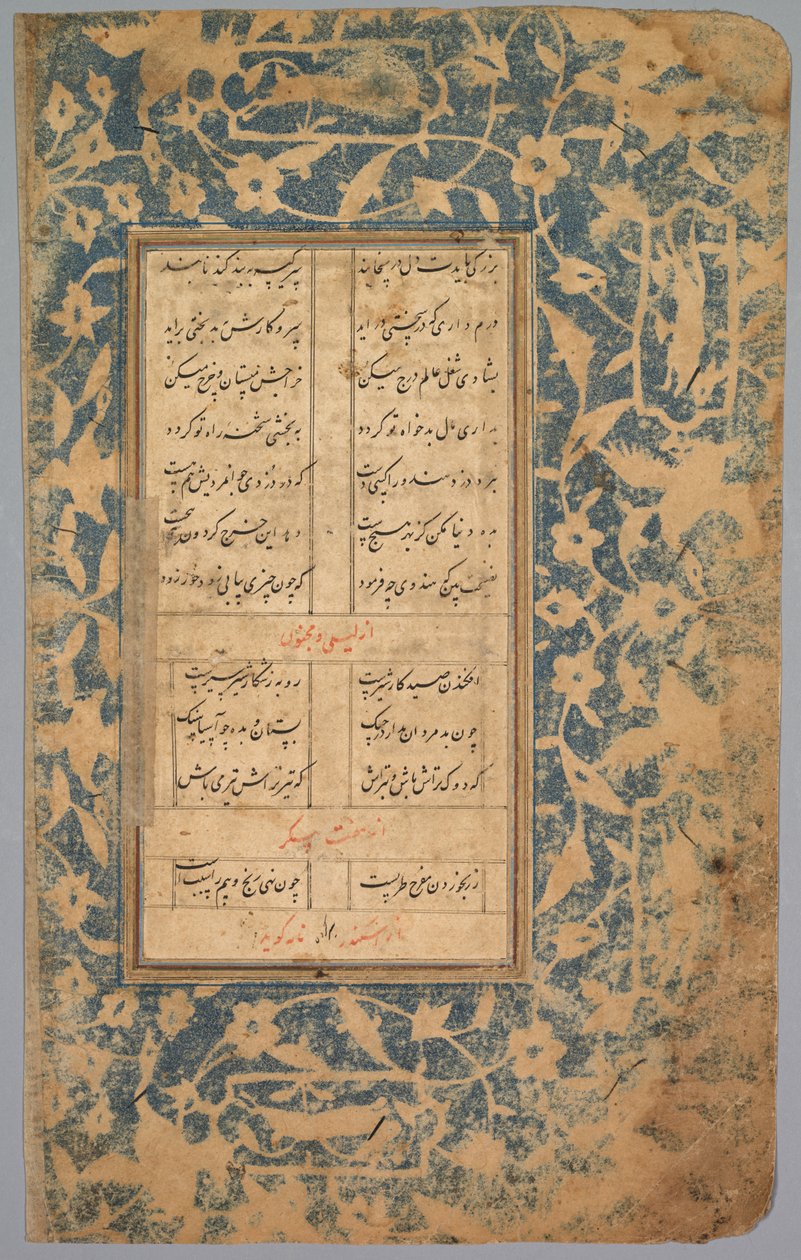 بزرگی بایدت دل در سخا بند سر کیسه به بند کند نا بند
درم داری که در سختی در آید سر و کارش به بدبختی برآید
بشادی شغل عالم درج میکن خراجش میستان و خرج میکن
بداری مال بدخواه تو گردد به بخشی شحنه راه تو گردد
نبرد دزد هندو را کسی دست که در دزدی جوانمردیش هم هست
بده دنیا مکن کز بهر هیچت دهد این چرخ گردون پیچت
نصیحت بین که هندوی چه فرمود که چون چیزی بیابی زود خور زود
از لیلی و مجنون
افکندن صید کار شیرست روبه ز شکار شیر سیرست
چون مردان مدار در چنگ بستان و بده چو آسیا سنگ
که دوک تراش باش و که تیر باش
از هفت پیکر
زر بخوردن مفرح طربست چون نهی رنج و بیم را سببست
از اسکندر نامه کوید